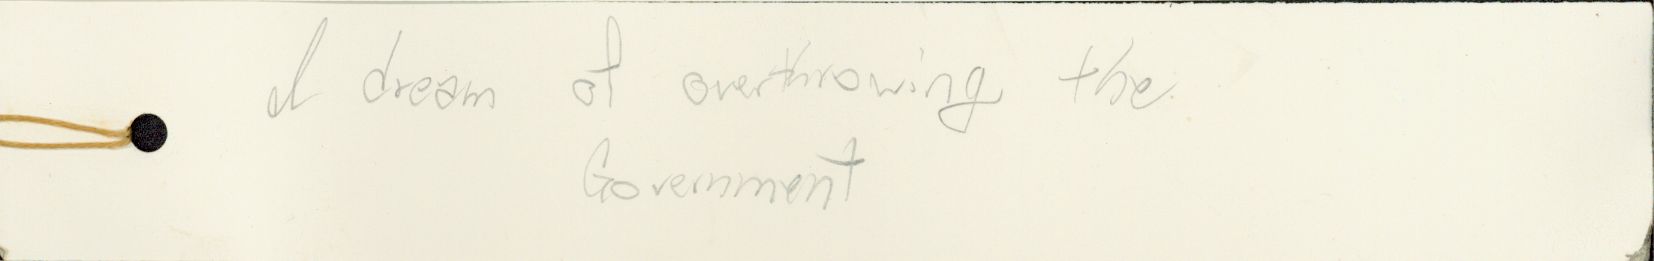 I dream of overthrowing the
Government